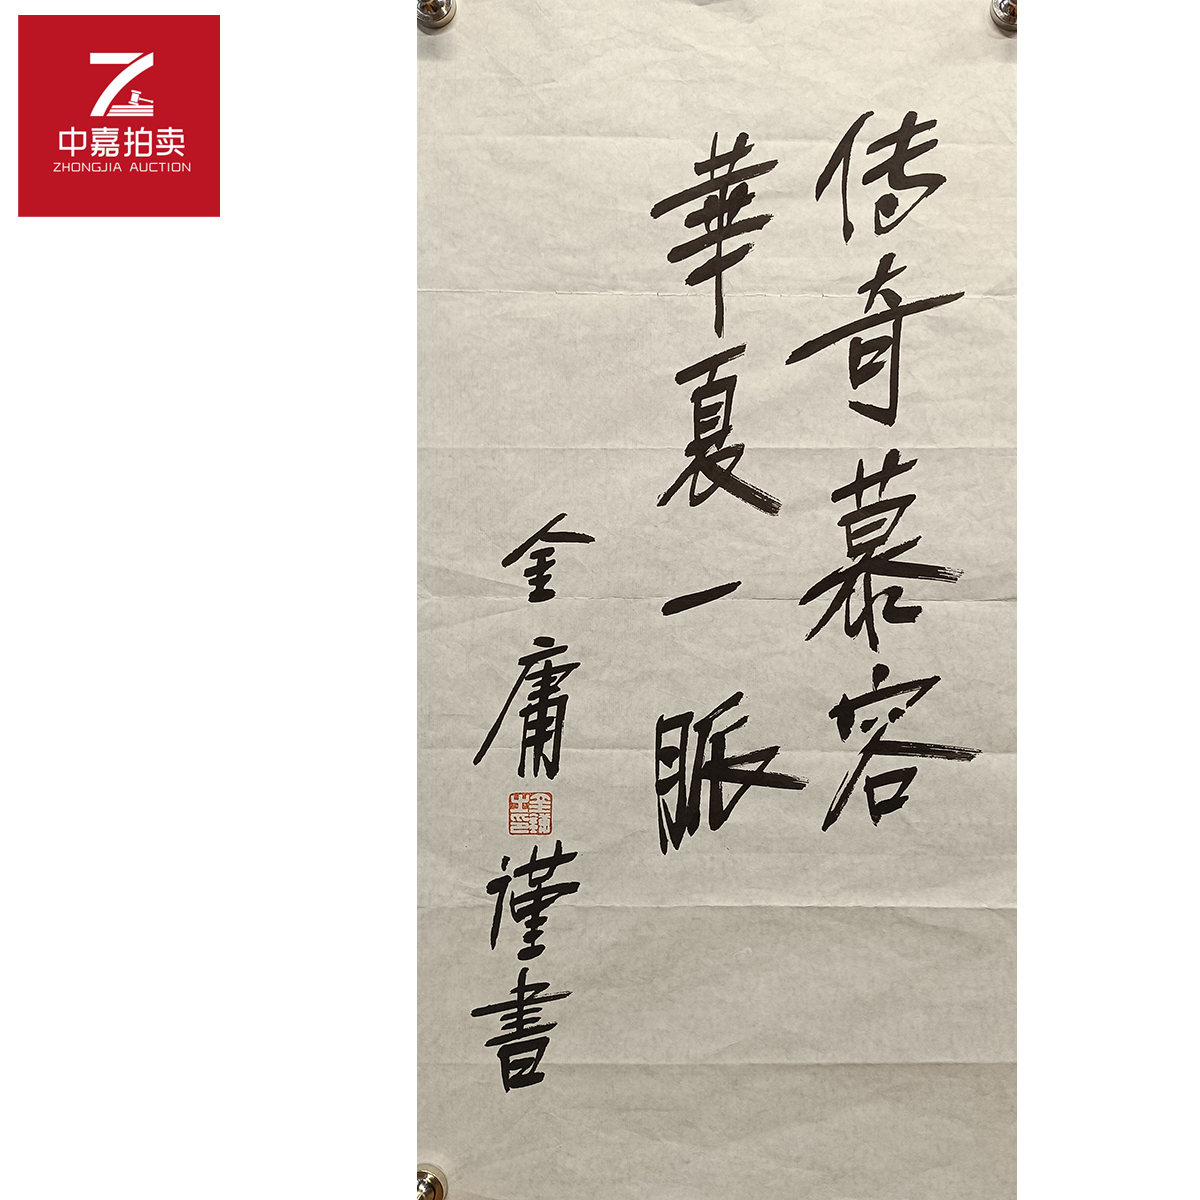 中嘉拍卖
ZHONGJIA AUCTION
传奇慕容
華夏一脈
金庸
謹書